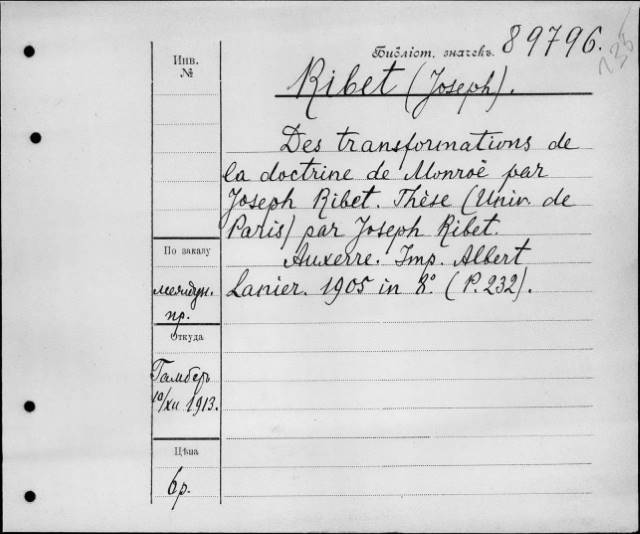 Библіот. значекъ. 89796.
Инв.
№
Ribet (Joseph).
Des transformations de
la doctrine de Monroè par
Joseph Ribet. Thèse (Univ. de
Paris) par Joseph Ribet.
Auxerre. Imp. Albert
Lanier. 1905 in 8º. (P. 232).
По заказу
междун.
пр.
Откуда
Гамберъ
10/XII 1913.
Цѣна
6р.